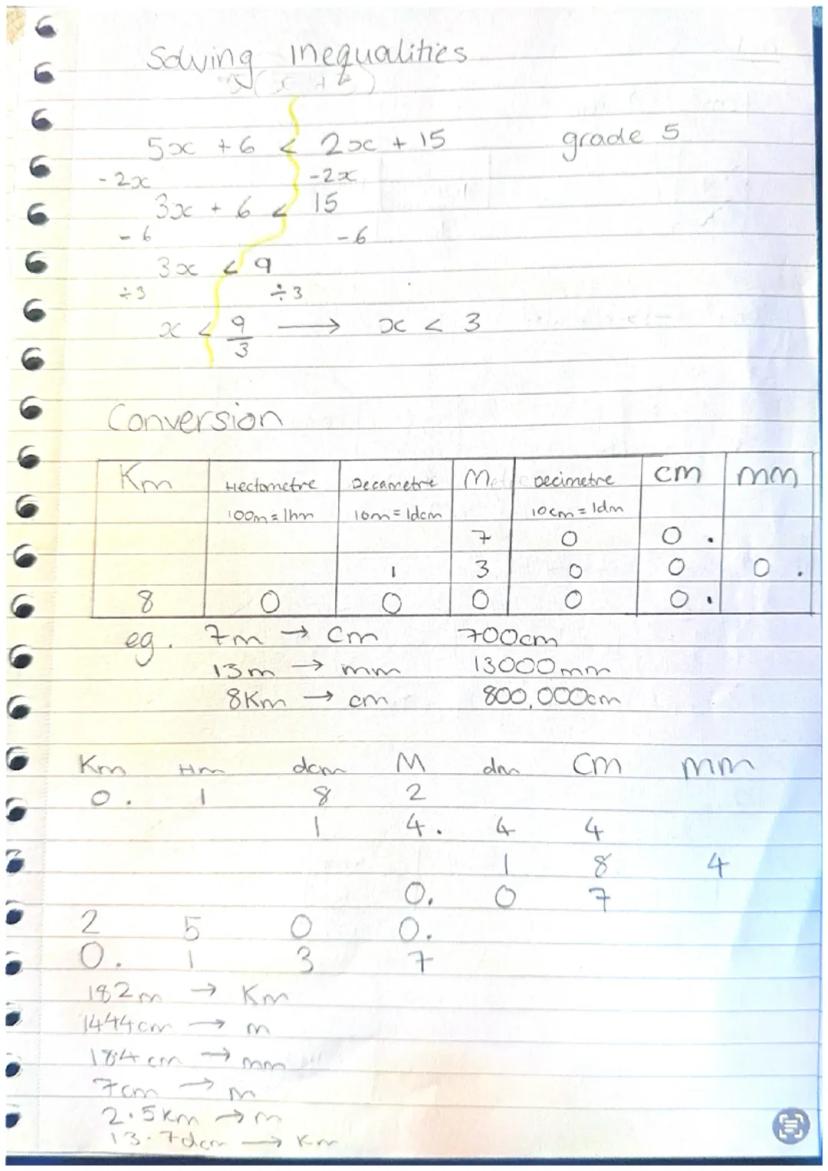 Solving Inequalities
5x + 6 < 2x + 15 grade 5
-2x -2x
3x + 6 < 15
-6 -6
3x < 9
÷3 ÷3
x < 9/3 → x < 3
Conversion
Km Hectometre Decametre M Decimetre cm mm
100m=1hm 10m=1dcm 10cm=1dm
7 0 0 .
1 3 0 0 0 .
8 0 0 0 0 0 .
eg. 7m → cm 700cm
13m → mm 13000mm
8Km → cm 800,000cm
Km Hm dcm M dm Cm mm
0. 1 8 2
1 4. 4 4
1 8 4
0. 0 7
2 5 0 0.
0. 1 3 7
182m → Km
1444cm → m
18.4cm → mm
7cm → m
2.5km → m
13.7dcm → Km